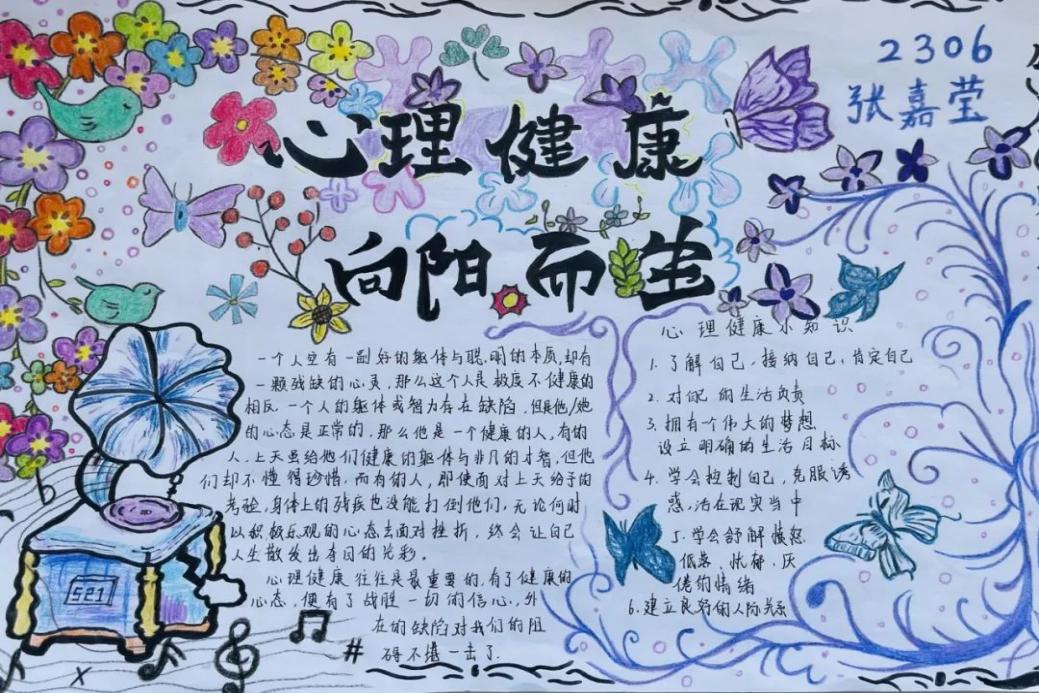 2306
张嘉莹
心理健康
向阳而生
一个人空有一副好的躯体与聪明的本质,却有
一颗残缺的心灵,那么这个人是极度不健康的
相反一个人的躯体或智力存在缺陷,但是他/她
的心态是正常的,那么他是一个健康的人,有的
人,上天虽给他们健康的躯体与非凡的才智,但他
们却不懂得珍惜,而有的人,即使面对上天给予的
考验,身体上的残疾也没能打倒他们,无论何时
以积极乐观的心态去面对挫折,终会让自己
人生散发出夺目的光彩。
心理健康往往是最重要的,有了健康的
心态,便有了战胜一切的信心,外
在的缺陷对我们的阻
碍不堪一击了.
心理健康小知识
1.了解自己,接纳自己,肯定自己
2.对自己的生活负责
3.拥有个伟大的梦想
设立明确的生活目标
4.学会控制自己,克服诱
惑,活在现实当中
5.学会舒解愤怒
低落、忧郁、厌
倦的情绪
6.建立良好的人际关系
521
#